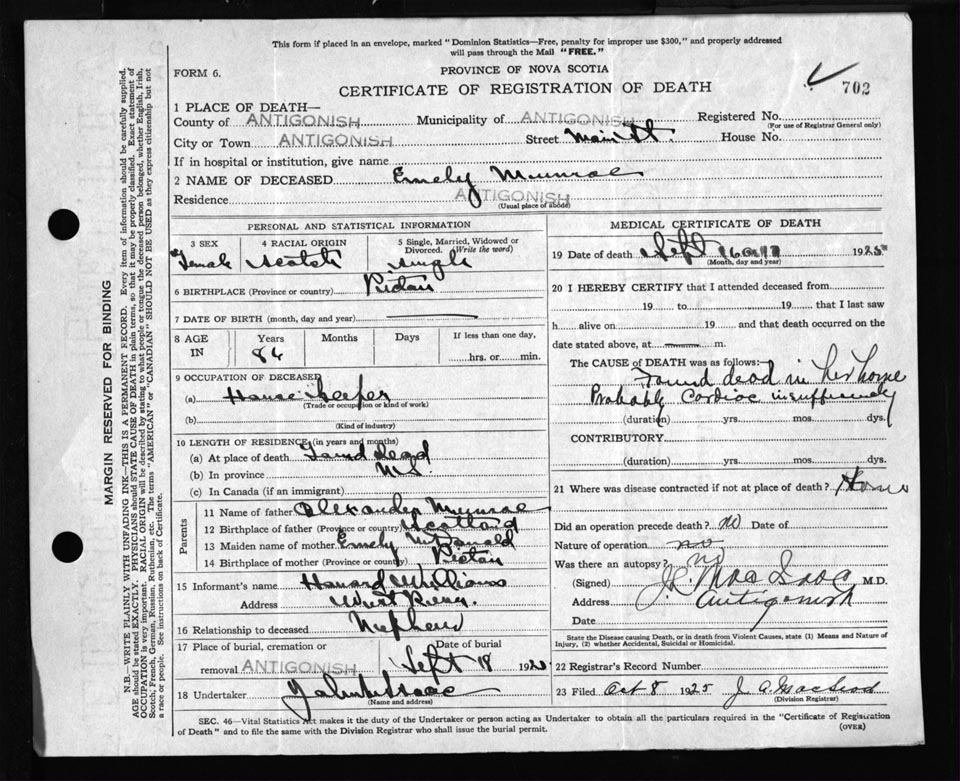 This form if placed in an envelope, marked "Dominion Statistics—Free, penalty for improper use $300," and properly addressed
will pass through the Mail "FREE."
FORM 6.
PROVINCE OF NOVA SCOTIA
702
CERTIFICATE OF REGISTRATION OF DEATH
1 PLACE OF DEATH—
County of ANTIGONISH Municipality of ANTIGONISH Registered No.
(For use of Registrar General only)
City or Town ANTIGONISH Street Main St. House No.
If in hospital or institution, give name
2 NAME OF DECEASED Emely Munroe
Residence ANTIGONISH
(Usual place of abode)
PERSONAL AND STATISTICAL INFORMATION
3 SEX 4 RACIAL ORIGIN 5 Single, Married, Widowed or Divorced. (Write the word)
Female Scotch single
6 BIRTHPLACE (Province or country) Pictou
7 DATE OF BIRTH (month, day and year)
8 AGE IN Years Months Days If less than one day,
84 hrs. or min.
9 OCCUPATION OF DECEASED
(a) House Keeper
(Trade or occupation or kind of work)
(b)
(Kind of industry)
10 LENGTH OF RESIDENCE (in years and months)
(a) At place of death Found dead
(b) In province N.S.
(c) In Canada (if an immigrant)
Parents
11 Name of father Alexander Munroe
12 Birthplace of father (Province or country) Scotland
13 Maiden name of mother Emely McDonald
14 Birthplace of mother (Province or country) Pictou
15 Informant's name Howard Williams
Address West River.
16 Relationship to deceased Nephew
17 Place of burial, cremation or Date of burial
removal ANTIGONISH Sept 18 1925
18 Undertaker
(Name and address)
MEDICAL CERTIFICATE OF DEATH
19 Date of death Sept 1925
(Month, day and year)
20 I HEREBY CERTIFY that I attended deceased from
19 to 19 that I last saw
h alive on 19 and that death occurred on
date stated above, at m.
The CAUSE OF DEATH was as follows:
Found dead in her home
Probably Cardiac insufficiency
(duration) yrs. mos. dys.
CONTRIBUTORY
(duration) yrs. mos. dys.
21 Where was disease contracted if not at place of death? Home
Did an operation precede death? no Date of
Nature of operation no
Was there an autopsy? no
(Signed) J. MacIsaac M.D.
Address Antigonish
Date
State the Disease causing Death, or in death from Violent Causes, state (1) Means and Nature of
Injury, (2) whether Accidental, Suicidal or Homicidal.
22 Registrar's Record Number
23 Filed Oct 8 1925 J. A. MacLeod
(Division Registrar)
SEC. 46—Vital Statistics Act makes it the duty of the Undertaker or person acting as Undertaker to obtain all the particulars required in the "Certificate of Registration
of Death" and to file the same with the Division Registrar who shall issue the burial permit.
(OVER)
MARGIN RESERVED FOR BINDING
N.B.—WRITE PLAINLY WITH UNFADING INK—THIS IS A PERMANENT RECORD. Every item of information should be carefully supplied.
AGE should be stated EXACTLY. PHYSICIANS should STATE CAUSE OF DEATH in plain terms, so that it may be properly classified. Exact statement of
OCCUPATION is very important. RACIAL ORIGIN will be described by stating to what people or tongue the deceased person belonged, whether English, Irish,
Scotch, French, German, Russian, Ruthenian, etc. The terms "AMERICAN" or "CANADIAN" SHOULD NOT BE USED as they express citizenship but not
a race or people. See instructions on back of Certificate.